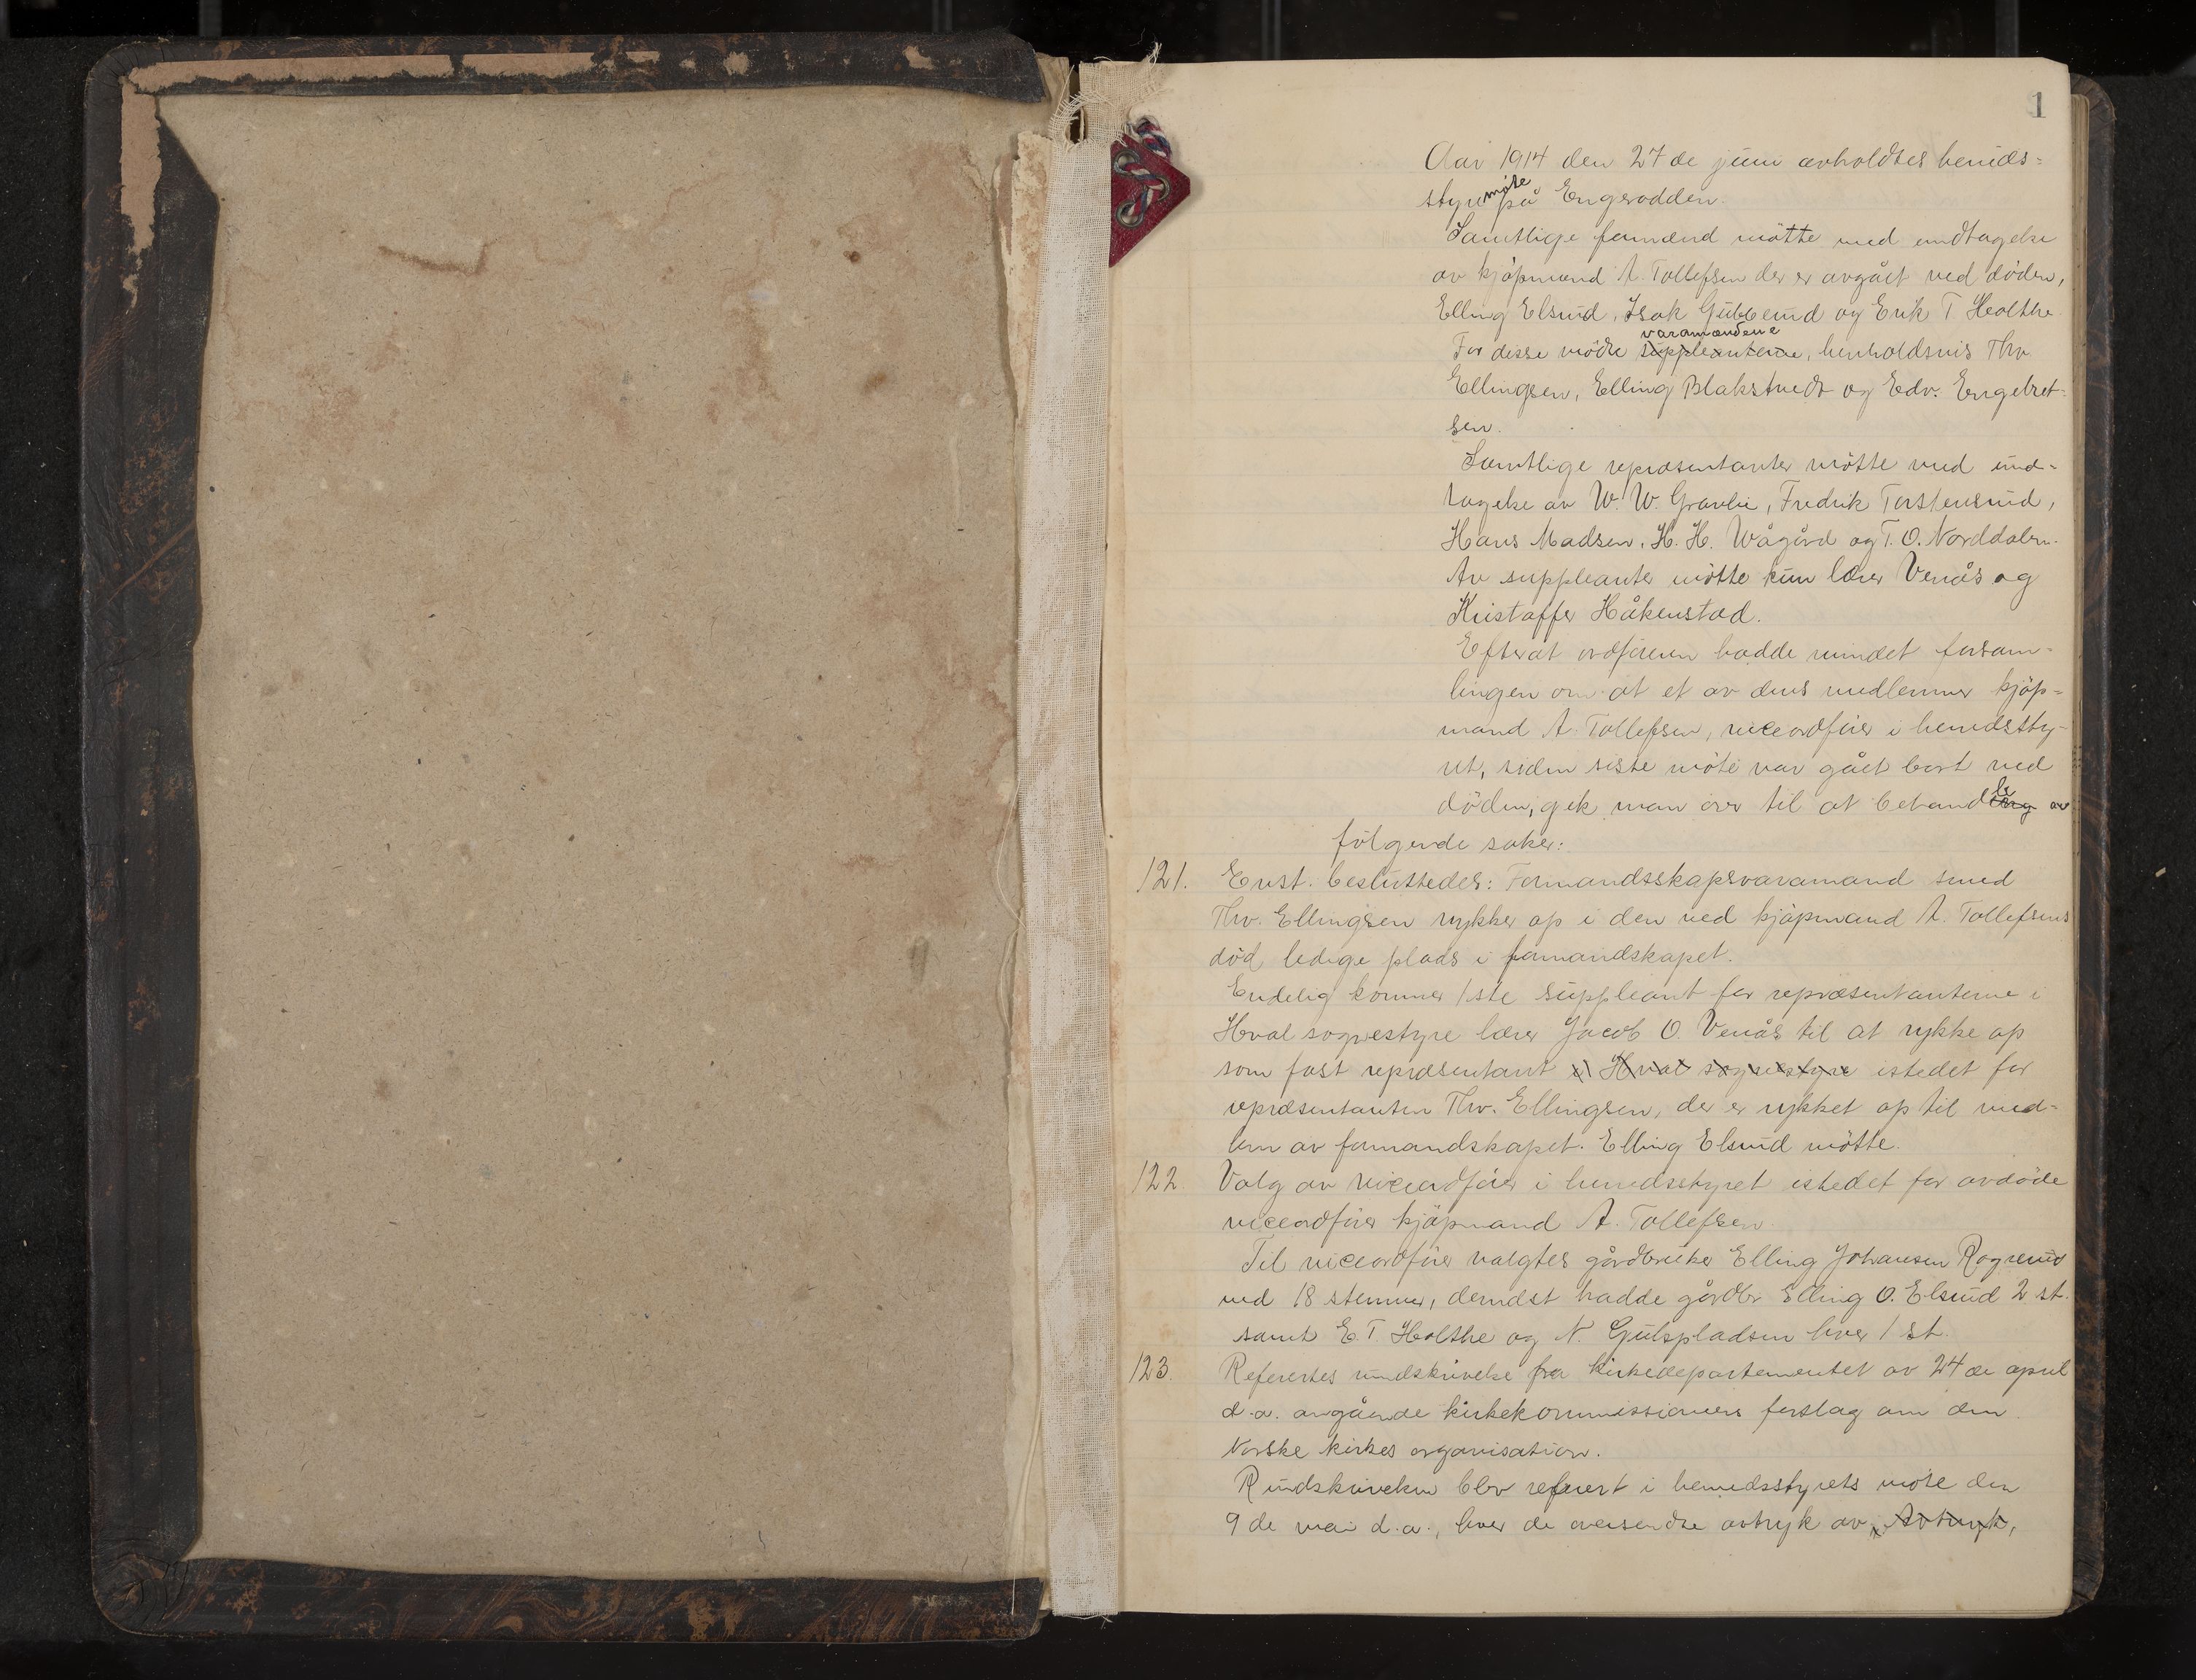 1
Aar 1914 den 27 de juni avholdtes herids=
styremøte på Engerodden.
Samtlige formænd møtte med undtagelse
av kjøpmand A. Tollefsen der er avgået ved døden,
Elling Elsrud, Isak Gubberud og Erik T. Holthe
varamændene
For disse møtte suppleanterne, henholdsvis Thv.
Ellingsen, Elling Blakstvedt og Edv. Engebret-
sen.
Samtlige repræsentanter møtte med und-
tagelse av W. W. Gravlie, Fredrik Torstensrud,
Hans Madsen, H. H. Wågård og T. O. Norddalen.
Av suppleanter møtte kun lærer Venås og
Kristoffer Håkenstad.
Efterat ordføreren hadde mindet forsam-
lingen om at et av dens medlemmer kjøp=
mand A. Tollefsen, viceordfører i herredssty-
ret, siden siste møte var gået bort ved
døden, gik man over til at behandling le av
følgende saker:
121. Enst. besluttedes: Formandsskapsvaramand smed
Thv. Ellingsen rykker op i den ved kjøpmand A. Tollefsens
død ledige plads i formandskapet.
Endelig kommer 1ste suppleant for repræsentanterne i
Hval sognestyre lærer Jacob O. Venås til at rykke op
som fast repræsentant i Hval sognestyre istedet for
repræsentanten Thv. Ellingsen, der er rykket op til med=
lem av formandskapet. Elling Elsrud møtte.
122. Valg av viceordfører i herredsstyret istedet for avdøde
viceordfører kjøpmand A. Tollefsen
Til viceordfører valgtes gårdbruker Elling Johansen Rognerud
med 18 stemmer, dernæst hadde gårdbr. Elling O. Elsrud 2 st.
samt E. T. Holthe og N. Gulspladsen hver 1 st.
123. Referertes rundskrivelse fra Kirkedepartementet av 24 de april
d.a. angående kirkekommissionens forslag om den
Norske kirkes organisation.
Rundskrivelsen blev referert i herredsstyrets møte den
9 de mai d.a., hvor de oversendte avtryk av Avtryk,